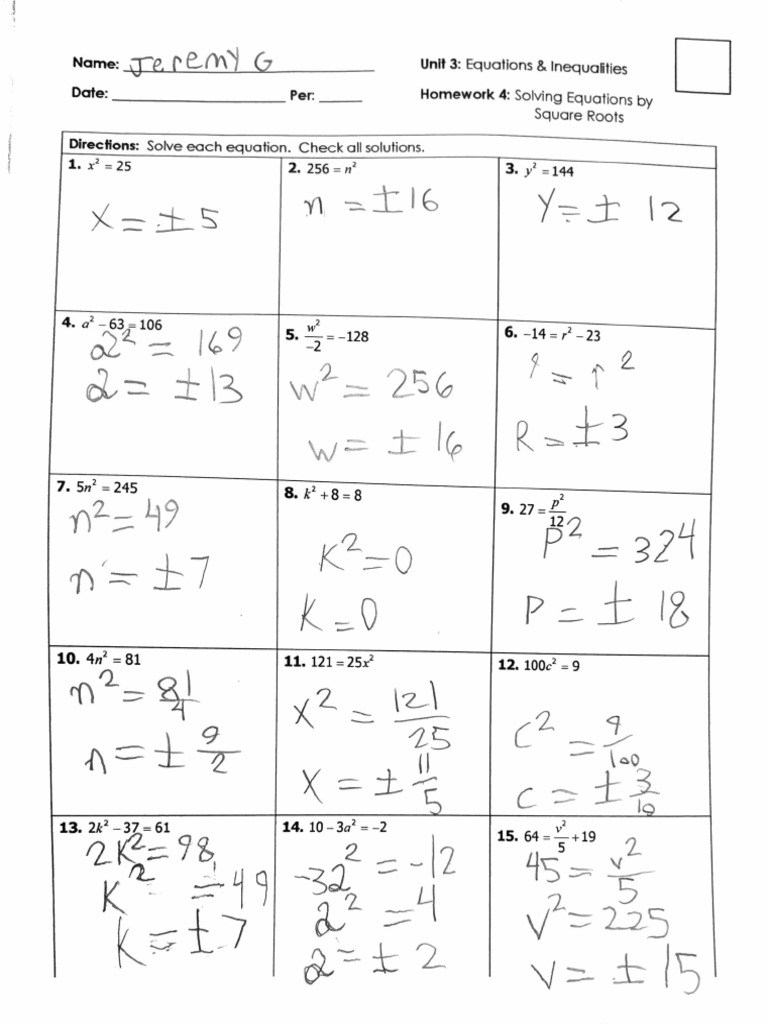 Name: Jeremy G
Unit 3: Equations & Inequalities
Date: ____________ Per: _____
Homework 4: Solving Equations by
Square Roots
Directions: Solve each equation. Check all solutions.
1. x² = 25
x = ±5
2. 256 = n²
n = ±16
3. y² = 144
y = ± 12
4. a² – 63 = 106
a² = 169
a = ±13
5. w²/–2 = –128
w² = 256
w = ± 16
6. –14 = r² – 23
9 = r²
R = ±3
7. 5n² = 245
n² = 49
n = ±7
8. k² + 8 = 8
K² = 0
K = 0
9. 27 = p²/12
P² = 324
P = ± 18
10. 4n² = 81
n² = 81/4
n = ± 9/2
11. 121 = 25x²
x² = 121/25
x = ± 11/5
12. 100c² = 9
c² = 9/100
c = ± 3/10
13. 2k² – 37 = 61
2K² = 98
K² = 49
K = ±7
14. 10 – 3a² = –2
-3a² = -12
a² = 4
a = ± 2
15. 64 = v²/5 + 19
45 = v²/5
v² = 225
v = ± 15